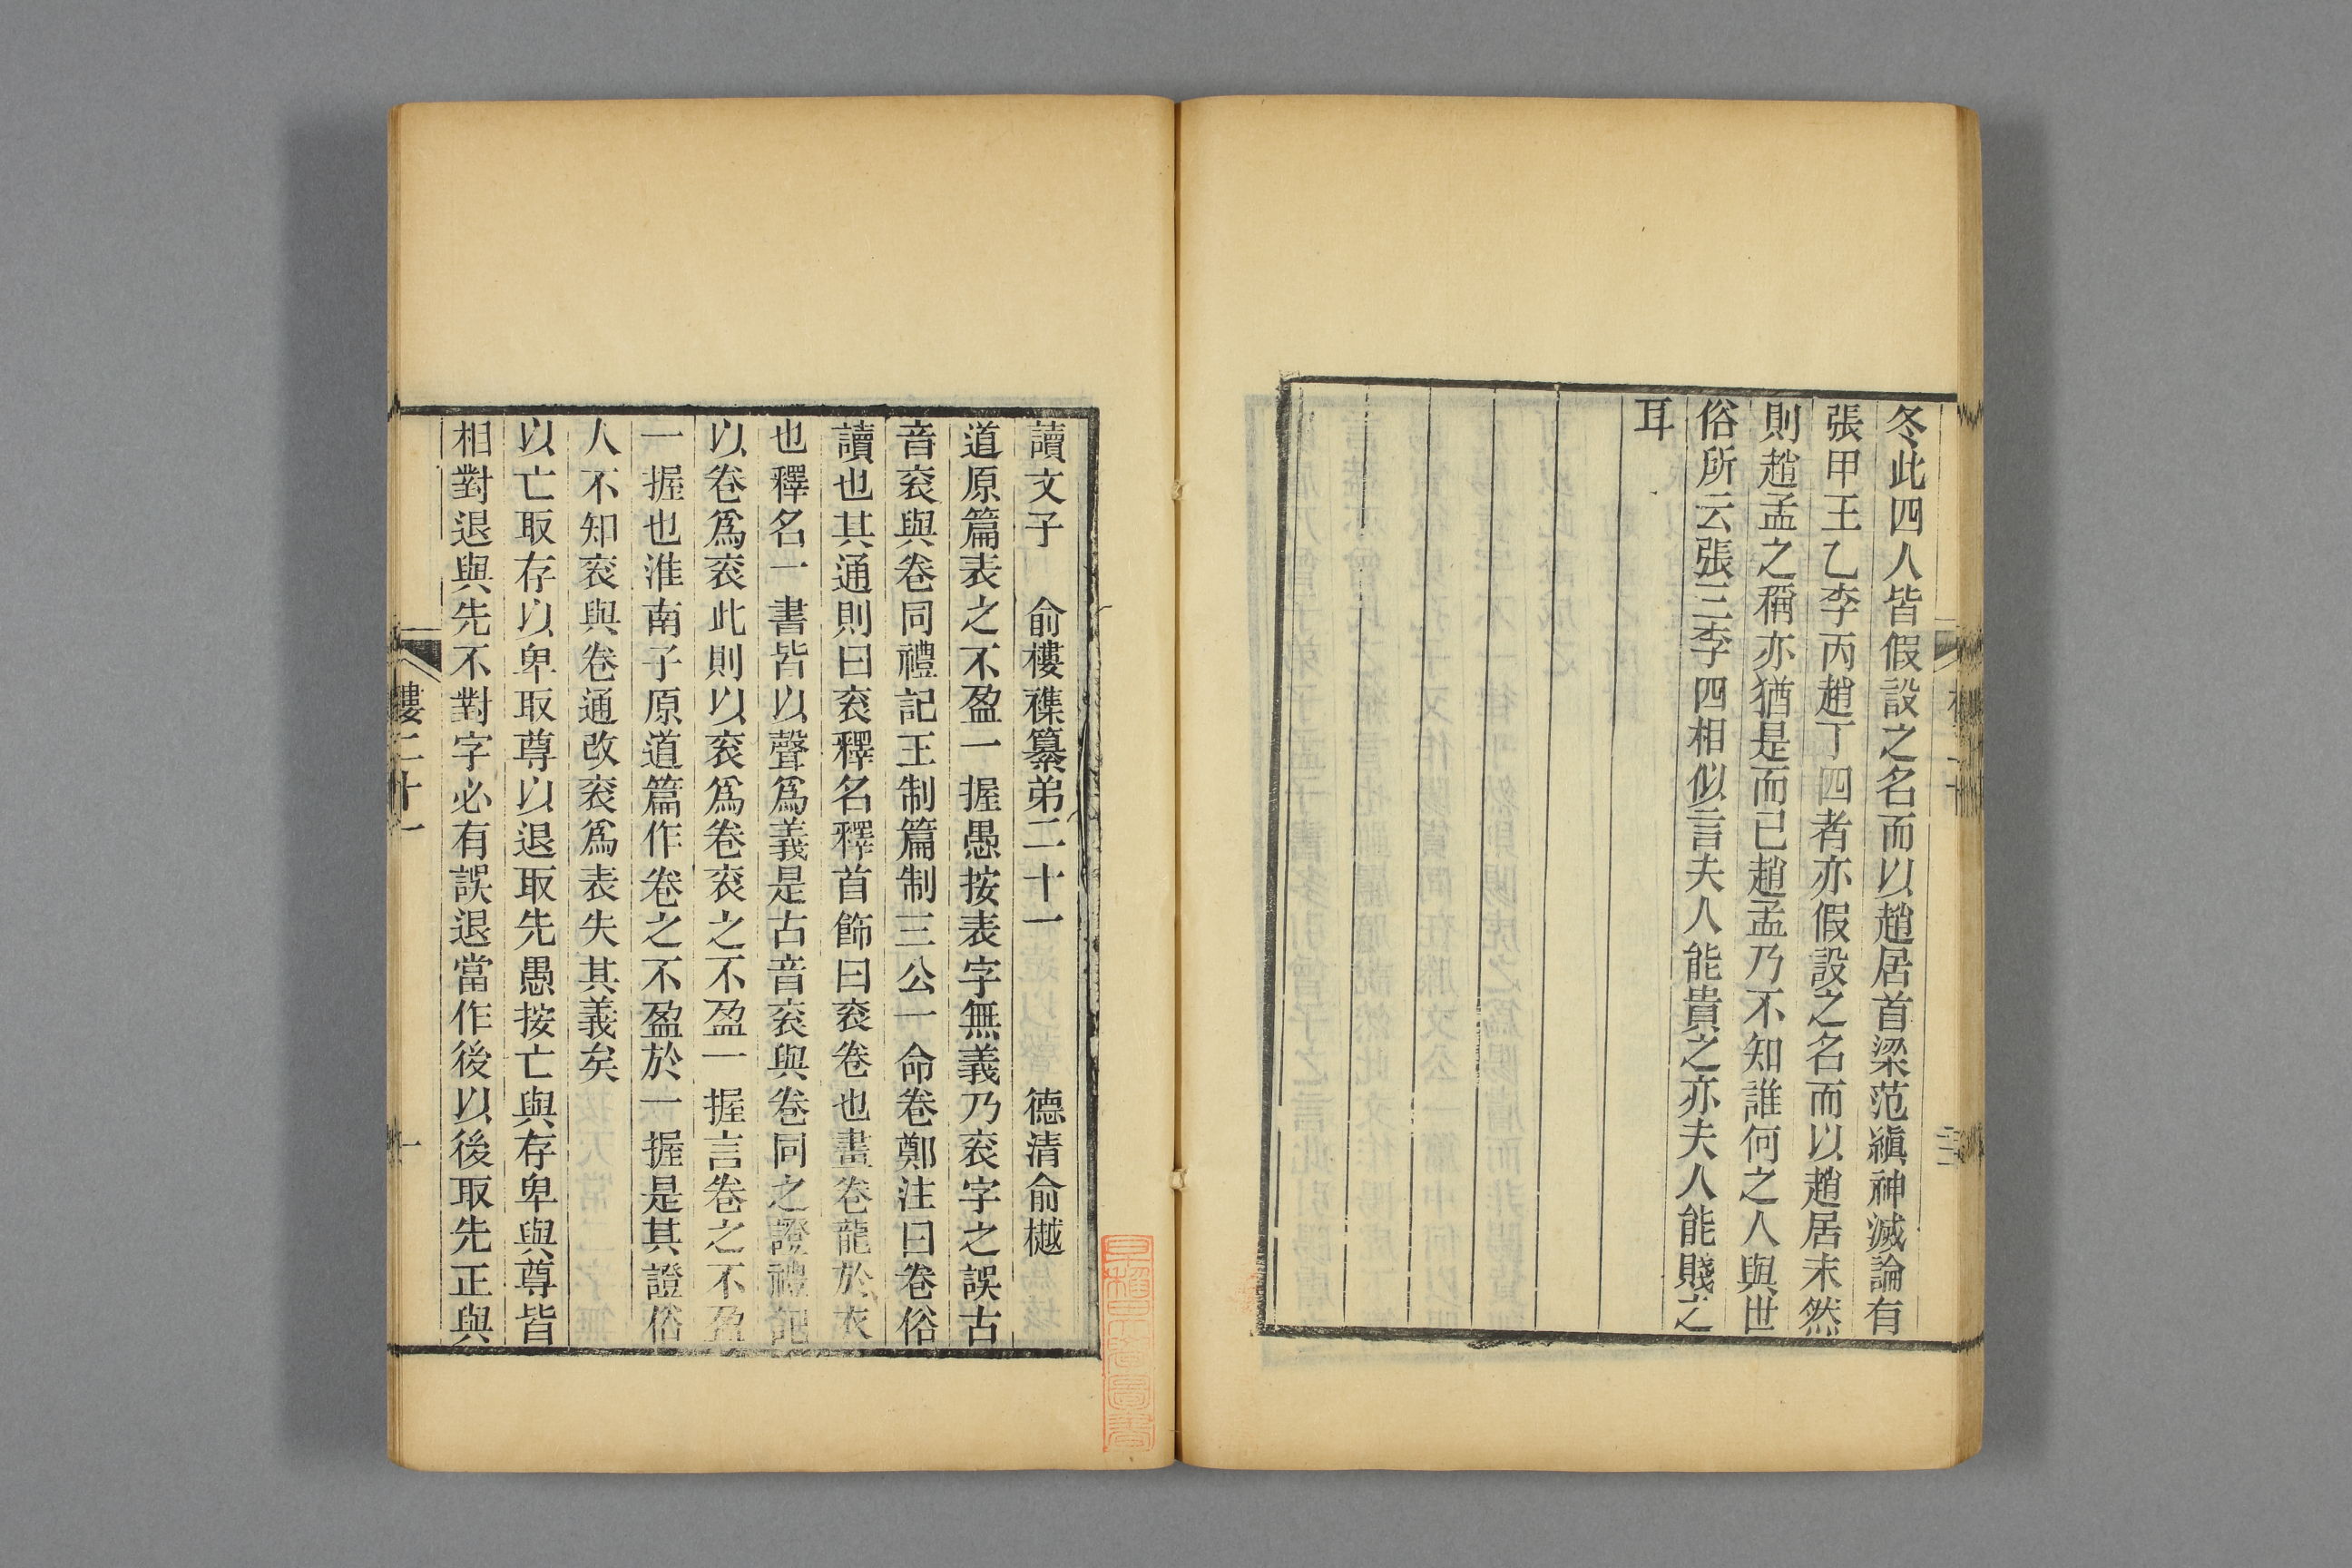 冬此四人皆假設之名而以趙居首梁范縝神滅論有
張甲王乙李丙趙丁四者亦假設之名而以趙居末然
則趙孟之稱亦猶是而已趙孟乃不知誰何之人與世
俗所云張三李四相似言夫人能貴之亦夫人能賤之
耳
讀文子 俞樓襍纂弟二十一 德清俞樾
道原篇表之不盈一握愚按表字無義乃袞字之誤古
音袞與卷同禮記王制篇制三公一命卷鄭注曰卷俗
讀也其通則曰袞釋名釋首飾曰袞卷也畫卷龍於衣
也釋名一書皆以聲爲義是古音袞與卷同之證禮記
以卷爲袞此則以袞爲卷袞之不盈一握言卷之不盈
一握也淮南子原道篇作卷之不盈於一握是其證俗
人不知袞與卷通改袞爲表失其義矣
以亡取存以卑取尊以退取先愚按亡與存卑與尊皆
相對退與先不對字必有誤退當作後以後取先正與
樓二十一
一